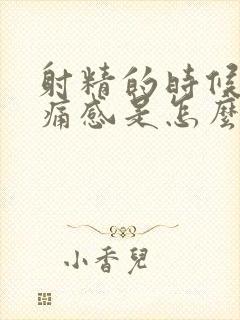 射精的時候
痛感是怎麼
小香兒